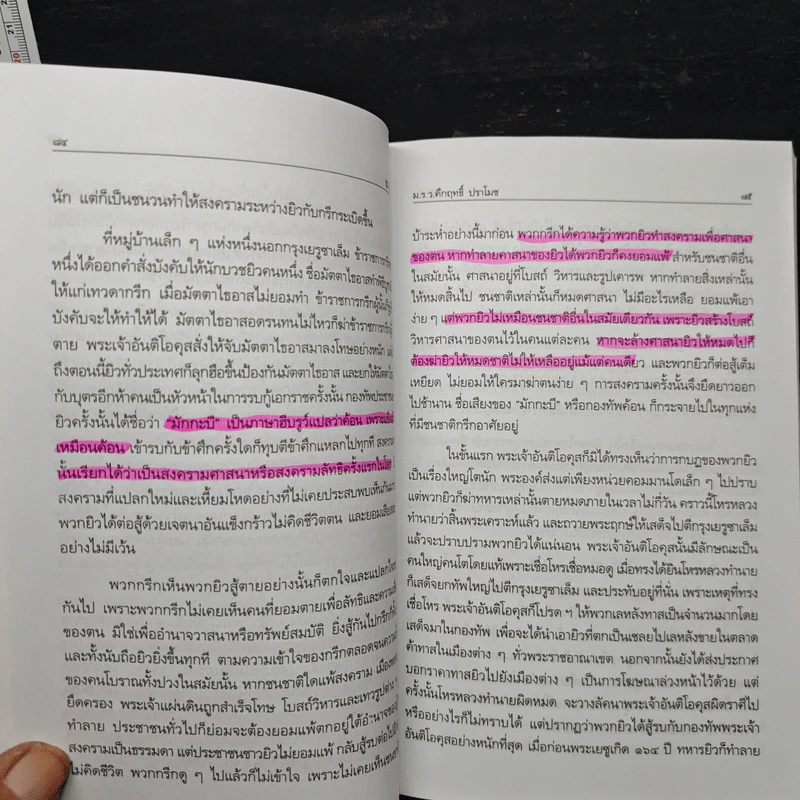 ๘๔
นัก แต่ก็เป็นชนวนทำให้สงครามระหว่างยิวกับกรีกระเบิดขึ้น
ที่หมู่บ้านเล็ก ๆ แห่งหนึ่งนอกกรุงเยรูซาเล็ม ข้าราชการกรีก
หนึ่งได้ออกคำสั่งบังคับให้นักบวชยิวคนหนึ่ง ชื่อมัตตาไธอาสทำพิธี
ให้แก่เทวดากรีก เมื่อมัตตาไธอาสไม่ยอมทำ ข้าราชการกรีกผู้นั้นก็
บังคับจะให้ทำให้ได้ มัตตาไธอาสอดรนทนไม่ไหวก็ฆ่าข้าราชการกรีก
ตาย พระเจ้าอันติโอคุสสั่งให้จับมัตตาไธอาสมาลงโทษอย่างหนัก
ถึงตอนนี้ยิวทั่วประเทศก็ลุกฮือขึ้นป้องกันมัตตาไธอาส และยกให้
กับบุตรอีกห้าคนเป็นหัวหน้าในการรบกู้เอกราชครั้งนั้น กองทัพ
ยิวครั้งนั้นได้ชื่อว่า "มักกะบี" เป็นภาษาฮีบรูว์แปลว่าค้อน เพราะ
เหมือนค้อน เข้ารบกับข้าศึกครั้งใดก็ทุบตีข้าศึกแหลกไปทุกที
นั้นเรียกได้ว่าเป็นสงครามศาสนาหรือสงครามลัทธิครั้งแรกในโลก
สงครามที่แปลกใหม่และเหี้ยมโหดอย่างที่ไม่เคยประสบพบเห็นกันมา
พวกยิวได้ต่อสู้ด้วยเจตนาอันแข็งกร้าวไม่คิดชีวิตตน และยอมเสีย
อย่างไม่มีเว้น
พวกกรีกเห็นพวกยิวสู้ตายอย่างนั้นก็ตกใจและแปลกใจ
กันไป เพราะพวกกรีกไม่เคยเห็นคนที่ยอมตายเพื่อลัทธิและความ
ของตน มิใช่เพื่ออำนาจวาสนาหรือทรัพย์สมบัติ ยิ่งสู้กันไปกรีกก็
และทั้งนับถือยิวยิ่งขึ้นทุกที ตามความเข้าใจของกรีกตลอดจน
ของคนโบราณทั้งปวงในสมัยนั้น หากชนชาติใดแพ้สงคราม
ยึดครอง พระเจ้าแผ่นดินถูกสำเร็จโทษ โบสถ์วิหารและเทวรูปต่าง ๆ
ทำลาย ประชาชนทั่วไปก็ย่อมจะต้องยอมแพ้ตกอยู่ใต้อำนาจของ
สงครามเป็นธรรมดา แต่ประชาชนชาวยิวไม่ยอมแพ้ กลับสู้รบต่อไป
ไม่คิดชีวิต พวกกรีกดู ๆ ไปแล้วก็ไม่เข้าใจ เพราะไม่เคยเห็น
ม.ร.ว.คึกฤทธิ์ ปราโมช
๘๕
บ้าระห่ำอย่างนี้มาก่อน พวกกรีกได้ความรู้ว่าพวกยิวทำสงครามเพื่อศาสนา
ของตน หากทำลายศาสนาของยิวได้พวกยิวก็คงยอมแพ้ สำหรับชนชาติอื่น
ในสมัยนั้น ศาสนาอยู่ที่โบสถ์ วิหารและรูปเคารพ หากทำลายสิ่งเหล่านั้น
ให้หมดสิ้นไป ชนชาติเหล่านั้นก็หมดศาสนา ไม่มีอะไรเหลือ ยอมแพ้เอา
ง่าย ๆ แต่พวกยิวไม่เหมือนชนชาติอื่นในสมัยเดียวกัน เพราะยิวสร้างโบสถ์
วิหารศาสนาของตนไว้ในคนแต่ละคน หากจะล้างศาสนายิวให้หมดไปก็
ต้องฆ่ายิวให้หมดชาติไม่ให้เหลืออยู่แม้แต่คนเดียว และพวกยิวก็ต่อสู้เต็ม
เหยียด ไม่ยอมให้ใครมาฆ่าตนง่าย ๆ การสงครามครั้งนั้นจึงยืดยาวออก
ไปช้านาน ชื่อเสียงของ "มักกะบี" หรือกองทัพค้อน ก็กระจายไปในทุกแห่ง
ที่มีชนชาติกรีกอาศัยอยู่
ในชั้นแรก พระเจ้าอันติโอคุสก็มิได้ทรงเห็นว่าการกบฏของพวกยิว
เป็นเรื่องใหญ่โตนัก พระองค์ส่งแต่เพียงหน่วยคอมมานโดเล็ก ๆ ไปปราบ
แต่พวกยิวก็ฆ่าทหารเหล่านั้นตายหมดภายในเวลาไม่กี่วัน คราวนี้โหรหลวง
ทำนายว่าสิ้นพระเคราะห์แล้ว และถวายพระฤกษ์ให้เสด็จไปตีกรุงเยรูซาเล็ม
แล้วจะปราบปรามพวกยิวได้แน่นอน พระเจ้าอันติโอคุสนั้นมีลักษณะเป็น
คนใหญ่คนโตโดยแท้เพราะเชื่อโหรเชื่อหมอดู เมื่อทรงได้ยินโหรหลวงทำนาย
ก็เสด็จยกทัพใหญ่ไปตีกรุงเยรูซาเล็ม และประทับอยู่ที่นั่น เพราะเหตุที่ทรง
เชื่อโหร พระเจ้าอันติโอคุสก็โปรด ฯ ให้พวกเลหลังทาสเป็นจำนวนมากโดย
เสด็จมาในกองทัพ เพื่อจะได้นำเอายิวที่ตกเป็นเชลยไปเลหลังขายในตลาด
ค้าทาสในเมืองต่าง ๆ ทั่วพระราชอาณาเขต นอกจากนั้นยังได้ส่งประกาศ
บอกราคาทาสยิวไปยังเมืองต่าง ๆ เป็นการโฆษณาล่วงหน้าไว้ด้วย แต่
ครั้งนั้นโหรหลวงทำนายผิดหมด จะวางลัคนาพระเจ้าอันติโอคุสผิดราศีไป
หรืออย่างไรก็ไม่ทราบได้ แต่ปรากฏว่าพวกยิวได้สู้รบกับกองทัพพระเจ้า
อันติโอคุสอย่างหนักที่สุด เมื่อก่อนพระเยซูเกิด ๑๖๔ ปี ทหารยิวก็ทำลาย